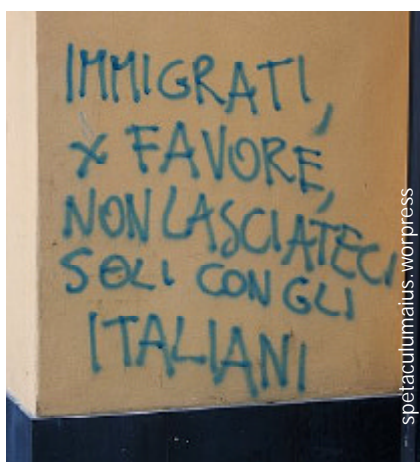 IMMIGRATI,
X FAVORE,
NON LASCIATECI
SOLI CON GLI
ITALIANI
spetaculumaius.worpress